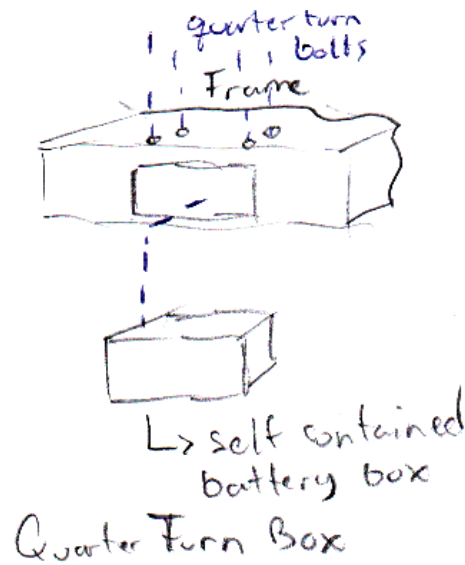 quarter turn
bolts
Frame
↳ self contained
battery box
Quarter Turn Box